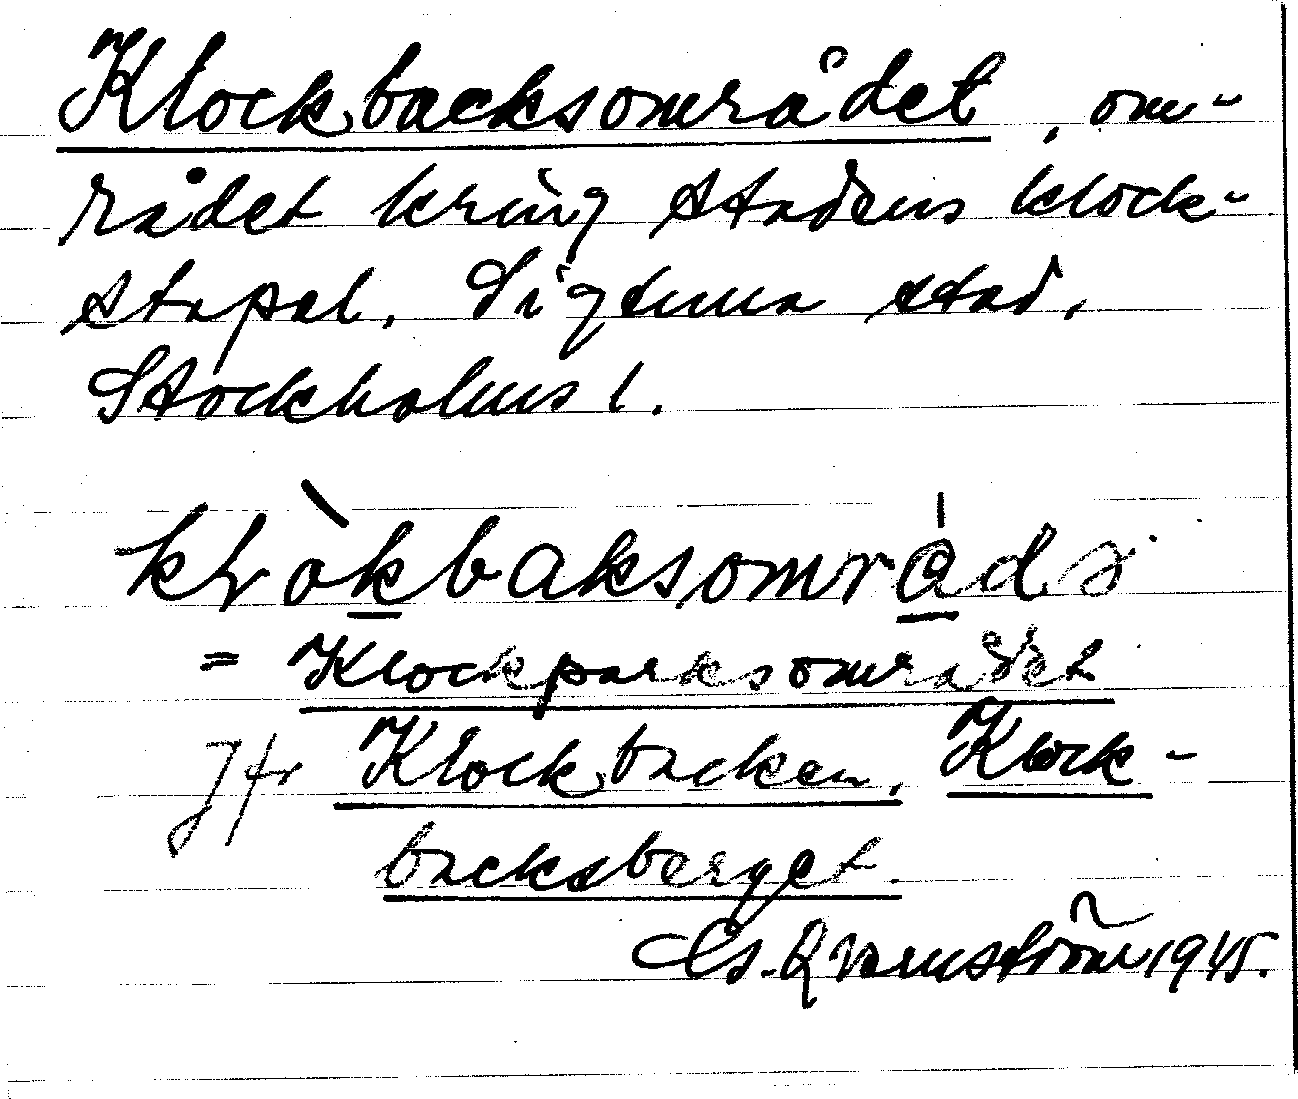 Klockbacksområdet, om-
rådet kring stadens klock-
stapel. Sigtuna stad,
Stockholms l.
klòkbaksområdə
= Klockparksområdet
Jfr Klockbacken, Klock-
backsberget.
Es. Qvarnström 1945.